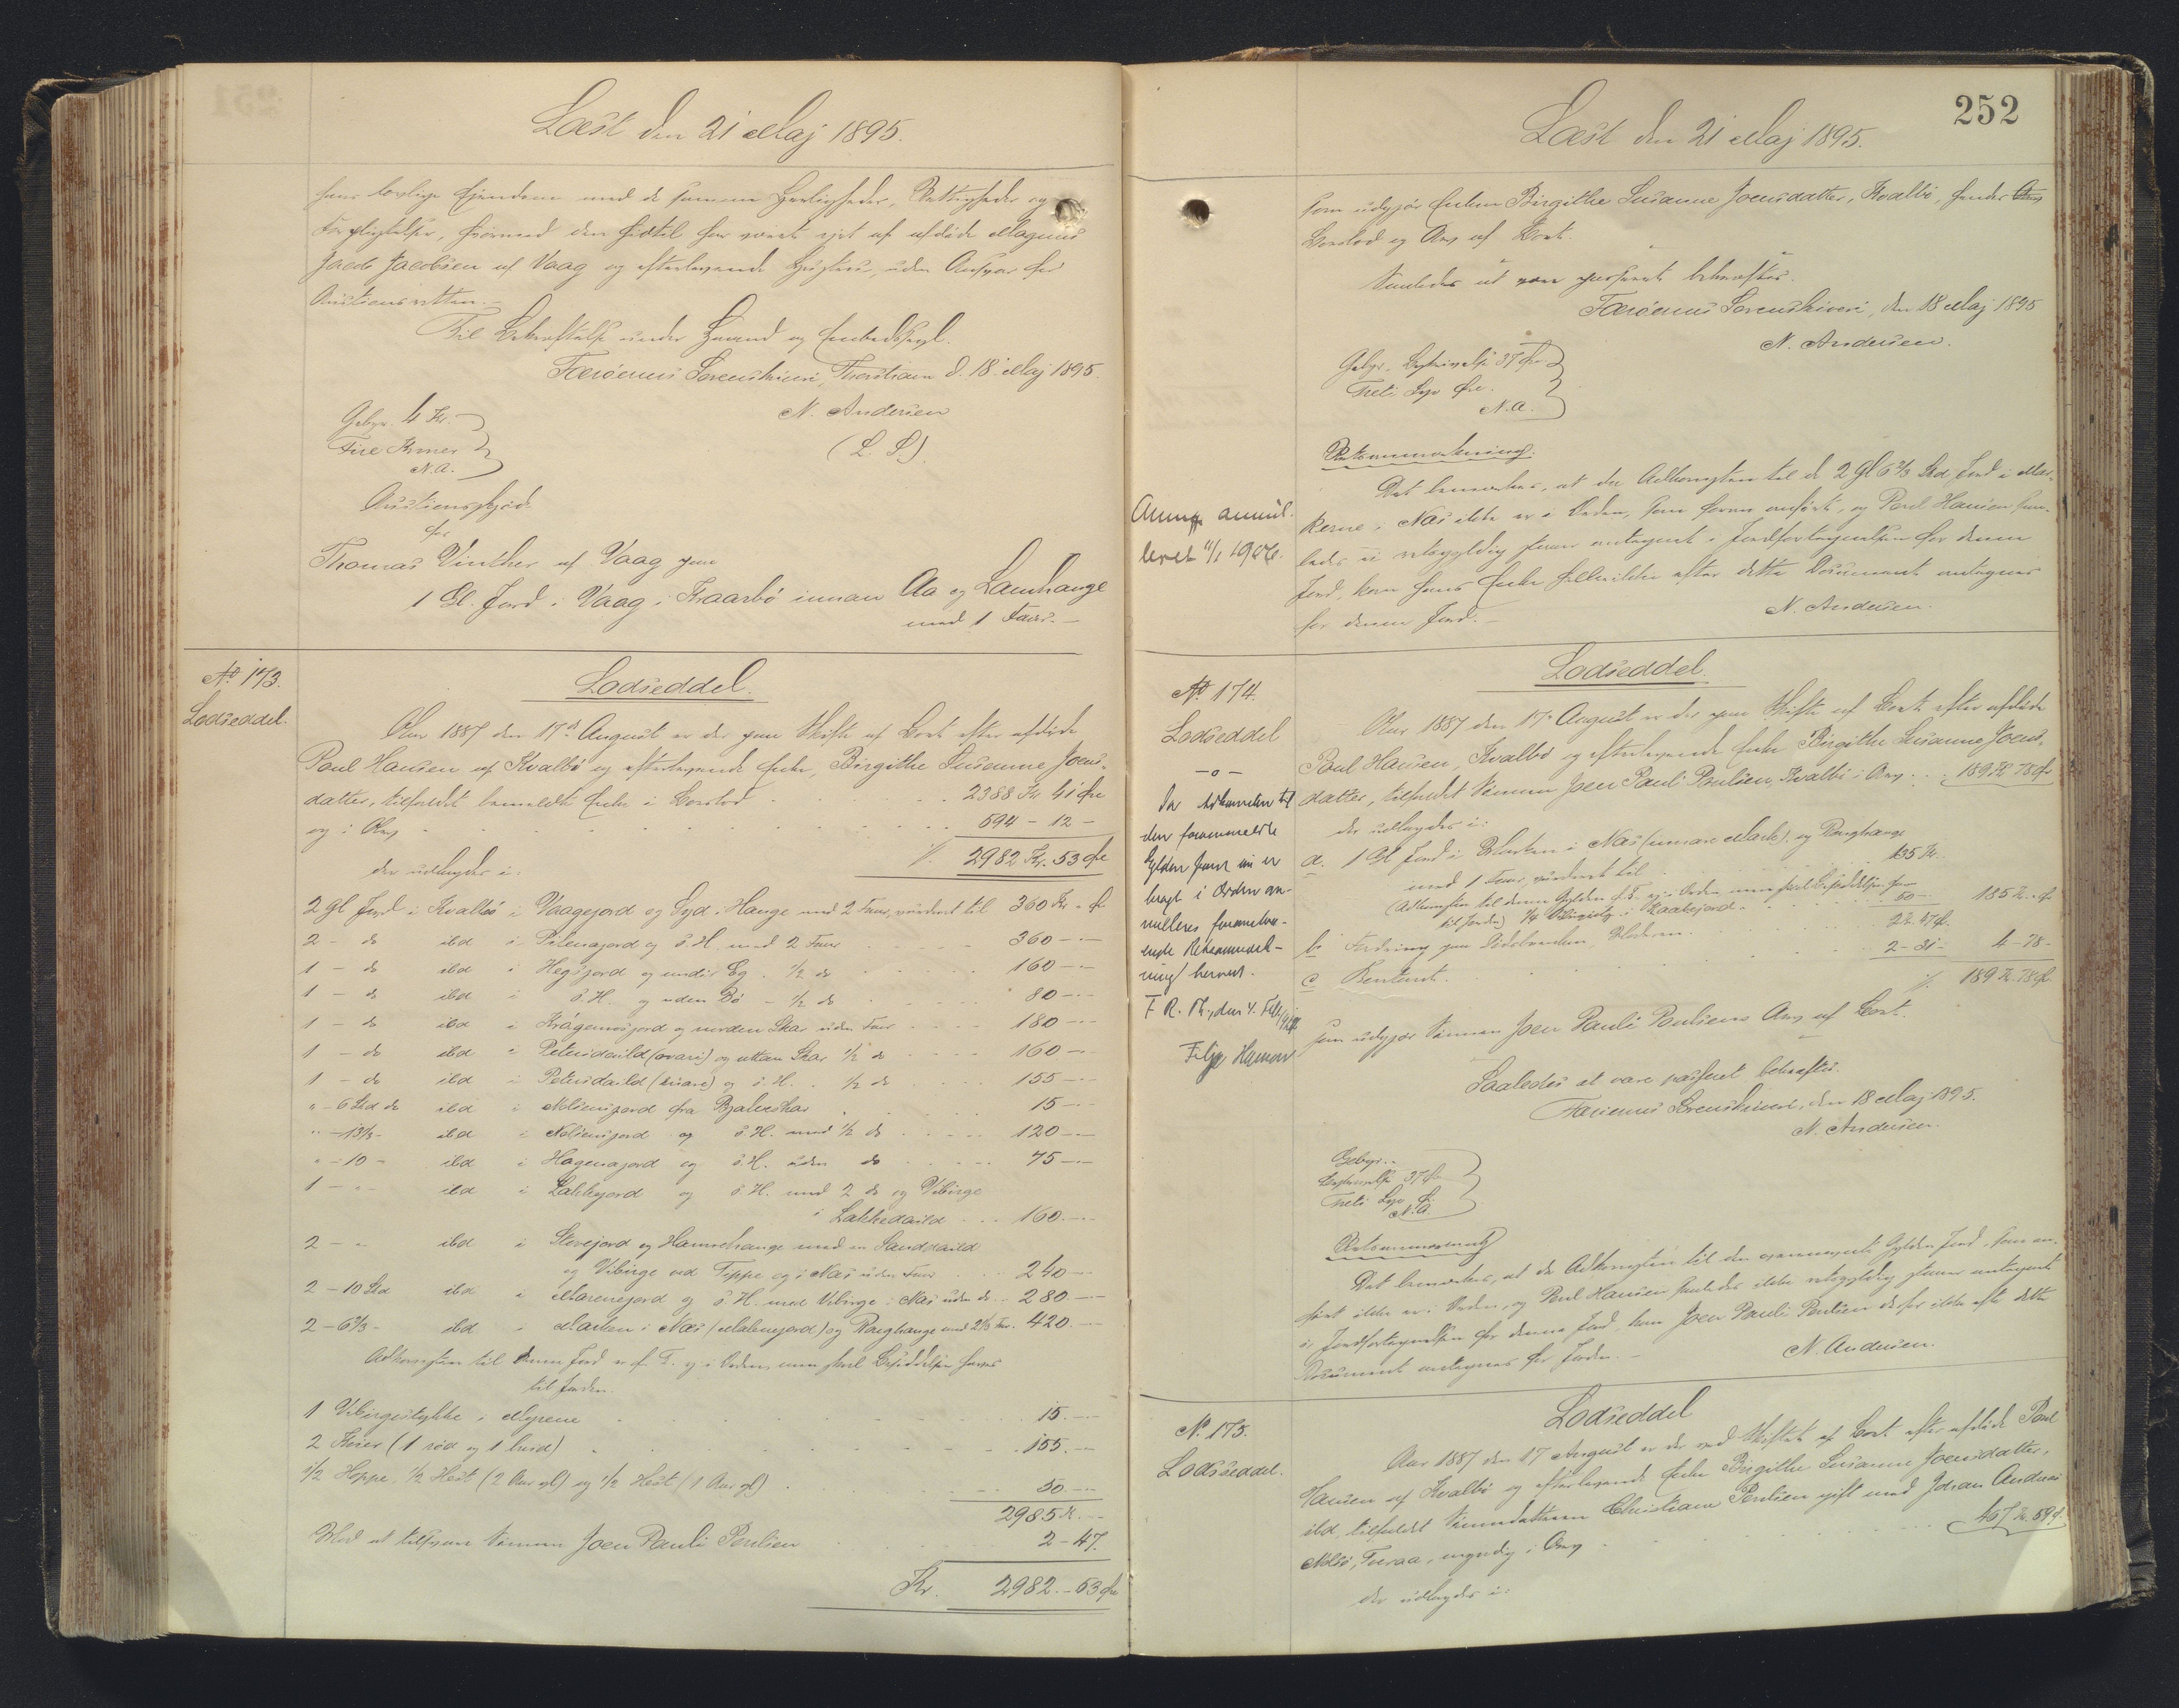 Læst den 21 Maj 1895.
hans lovlige Ejendom med de samme Herligheder, Rettigheder og
Forpligtelser, hvormed den hidtil har været ejet af afdøde Magnus
Jacob Jacobsen af Vaag og efterlevende Hustru, uden Ansvar for
Auctionsretten.-
Til Bekræftelse under Haand og Embedssegl.
Færøernes Sorenskriveri, Thorshavn d. 18 Maj 1895.
N. Andersen
(L. S.)
Gebyr. 4 Kr.
Fire Kroner
N.A.
Auctionsskjøde
for
Thomas Vinther af Vaag paa
1 Gl. Jord i Vaag i Kraarbø innan Aa og Lamhauge
med 1 Faar.-
No 173.
Lodseddel.
Lodseddel.
Aar 1887 den 17d August er der paa Skifte af Boet efter afdøde
Poul Hansen af Kvalbø og efterlevende Enke, Birgithe Susanne Joens-
datter, tilfaldet bemeldte Enke i Boeslod 2388 Kr. 41 Øre
og i Arv 594 - 12 -
/. 2982 Kr. 53 Øre
der udlægges i:
2 Gl Jord i Kvalbø i Vaagejord og Syd. Hauge med 2 Faar, vurderet til 360 Kr. - Ø.
2 - do ibd i Pitersajord og S. H. med 2 Faar 360 -.-
1 - do ibd i Hegsjord og undir Eg. 1/2 do 160 -.-
1 - do ibd i S. H. og uden Bø - 1/2 do 80 -.-
1 - do ibd i Krågemosjord og norden Skar uden Faar 180 -.-
1 - do ibd i Petersdeild (ovari) og uttan Skar 1/2 do 160 -.-
1 - do ibd i Petersdeild (niare) og S. H. 1/2 do 155 -.-
" - 6 Skd do ibd i Nolsensjord fra Bjalneskar 15 -.-
" - 13 1/3 - ibd i Nolsensjord og S. H. med 1/2 do 120 -.-
" - 10 - ibd i Hagensajord og S. H. uden do 75 -.-
1 - " - ibd i Lakkejord og S. H. med 2 do og Vibirge
i Lakkedaild 160.-
2 - " ibd i Slevejord og Hamrehauge med en Sanddaild
og Vibirge ved Teppe og i Næs uden Faar 240 -.-
2 - 10 Skd ibd " Marenejord og S. H. med Vibirge i Næs uden do 280 -.-
2 - 6 2/3 - ibd " Marken i Næs (Malenejord) og Rænghauge med 2 1/3 Fr. 420.-
Adkomsten til denne Jord er f. T. ej i Orden, men skal Besiddelsen haves
til Jorden.
1 Vibirgestykke i Myrene 15.-
2 Køer (1 rød og 1 hvid) 155.-
1/2 Hoppe, 1/2 Hest (2 Aar gl) og 1/2 Hest (1 Aar gl) 50.-
2985 Kr.-
Mod at tilsvare Sønnen Joen Pauli Poulsen 2 - 47.
Kr. 2982.- 53 Øre
252
Læst den 21 Maj 1895.
som udgjør Enken Birgithe Susanne Joensdatter, Kvalbø, hendes
Boeslod og Arv af Boet.
Saaledes at være passeret bekræftes.
Færøernes Sorenskriveri, den 18 Maj 1895
N. Andersen.
Gebyr. Beskrivelse 37 Øre
Treti Syv Øre.
N.A.
Retsanmærkning.
Anmg annul-
leret 11/1 1926.
Det bemærkes, at da Adkomsten til de 2 Gl 6 2/3 Skd Jord i Mar-
kerne i Næs ikke er i Orden, som foran anført, og Poul Hansen saa-
ledes ei retsgyldig staar antegnet i Jordfortegnelsen for denne
Jord, kan hans Enke heller ikke efter dette Document antegnes
for denne Jord.-
N. Andersen.
No 174.
Lodseddel
-o-
Da Adkomsten til
den foranmeldte
Gylden Jord nu er
bragt i Orden an-
nulleres foranstaa-
ende Retsanmærk-
ning herved.
Lodseddel.
Aar 1887 den 17. August er der paa Skifte af Boet efter afdøde
Poul Hansen, Kvalbø og efterlevende Enke Birgithe Susanne Joens-
datter, tilfaldet Sønnen Joen Pauli Poulsen, Kvalbø i Arv 189 Kr 78 Ør
der udlægges i:
a. 1 Gl Jord i Marken i Næs (innare Mark) og Rænghauge
med 1 Faar, vurderet til 135 Kr.
(Adkomsten til denne Gylden f. T. ej i Orden men skal Besiddelsen haves
til Jorden) 1/4 Vibirgstg. i Raakejord 50 - 185 Kr. - Ø
b. Fordring paa Moderen 2 Kr. 47 Ø.
c Contant. 2 - 31 - 4 - 78 -
/. 189 Kr. 78 Ø.
som udgjør Sønnen Joen Pauli Poulsens Arv af Boet.
Saaledes at være passeret bekræftes.
Færøernes Sorenskriveri, den 18 Maj 1895.
N. Andersen.
Gebyr.
Beskrivelse 37 Øre
Treti Syv Ø.
N.A.
Retsanmærkning
Det bemærkes, at da Adkomsten til den ovennævnte Gylden Jord som an-
ført ikke er i Orden, og Poul Hansen saaledes ikke retsgyldig staaer antegnet
i Jordfortegnelsen for denne Jord, kan Joen Pauli Poulsen derfor ikke efter dette
Document antegnes for Jorden.-
N. Andersen.
No 175.
Lodsseddel.
Lodseddel
Aar 1887 den 17 August er der ved Skiftet af Boet efter afdøde Poul
Hansen af Kvalbø og efterlevende Enke Birgithe Susanne Joensdatter,
ibd, tilfaldet Sønnedatteren Christiane Poulsen gift med Johan Andreas
Nolsø, Tveraa, myndig i Arv 467 Kr. 59 Ø.
der udlægges i: